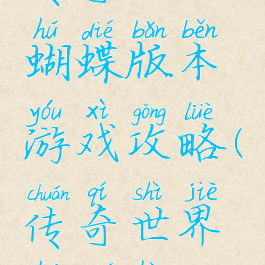 hú dié bǎn běn
蝴蝶版本
yóu xì gōng lüè
游戏攻略(
chuán qí shì jiè
传奇世界